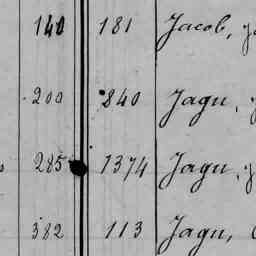 140 181 Jacob,
200 840 Jagu,
285 1374 Jagu,
382 113 Jagu,